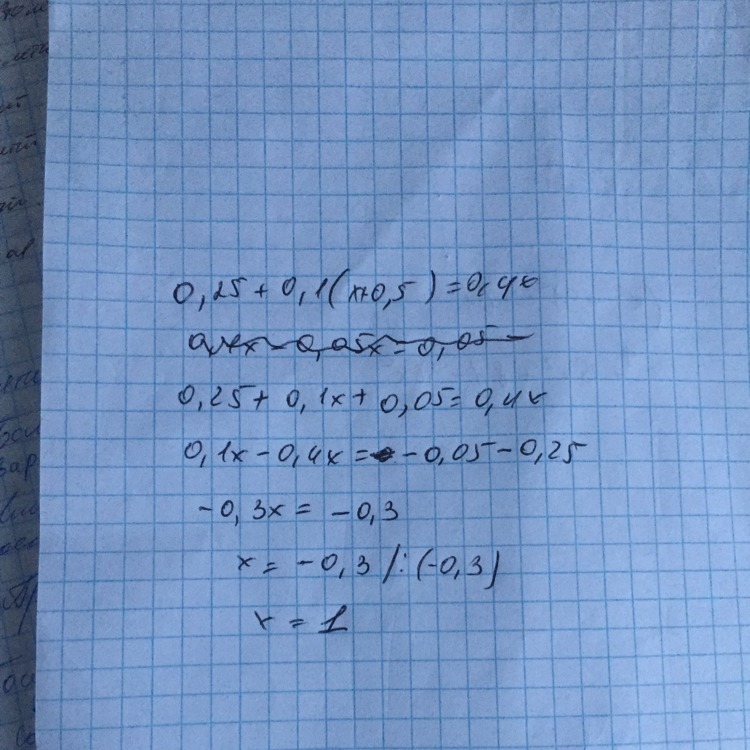 0,25 + 0,1(x+0,5) = 0,4x
0,4x - 0,05x = 0,05
0,25 + 0,1x + 0,05 = 0,4x
0,1x - 0,4x = -0,05 - 0,25
-0,3x = -0,3
x = -0,3 /: (-0,3)
x = 1